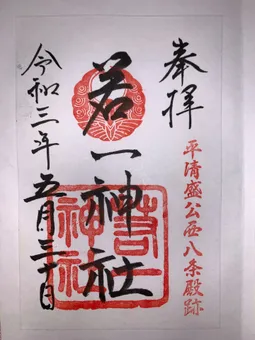 奉拝
平清盛公西八条殿跡
若一神社
令和三年五月三十日
若一神社